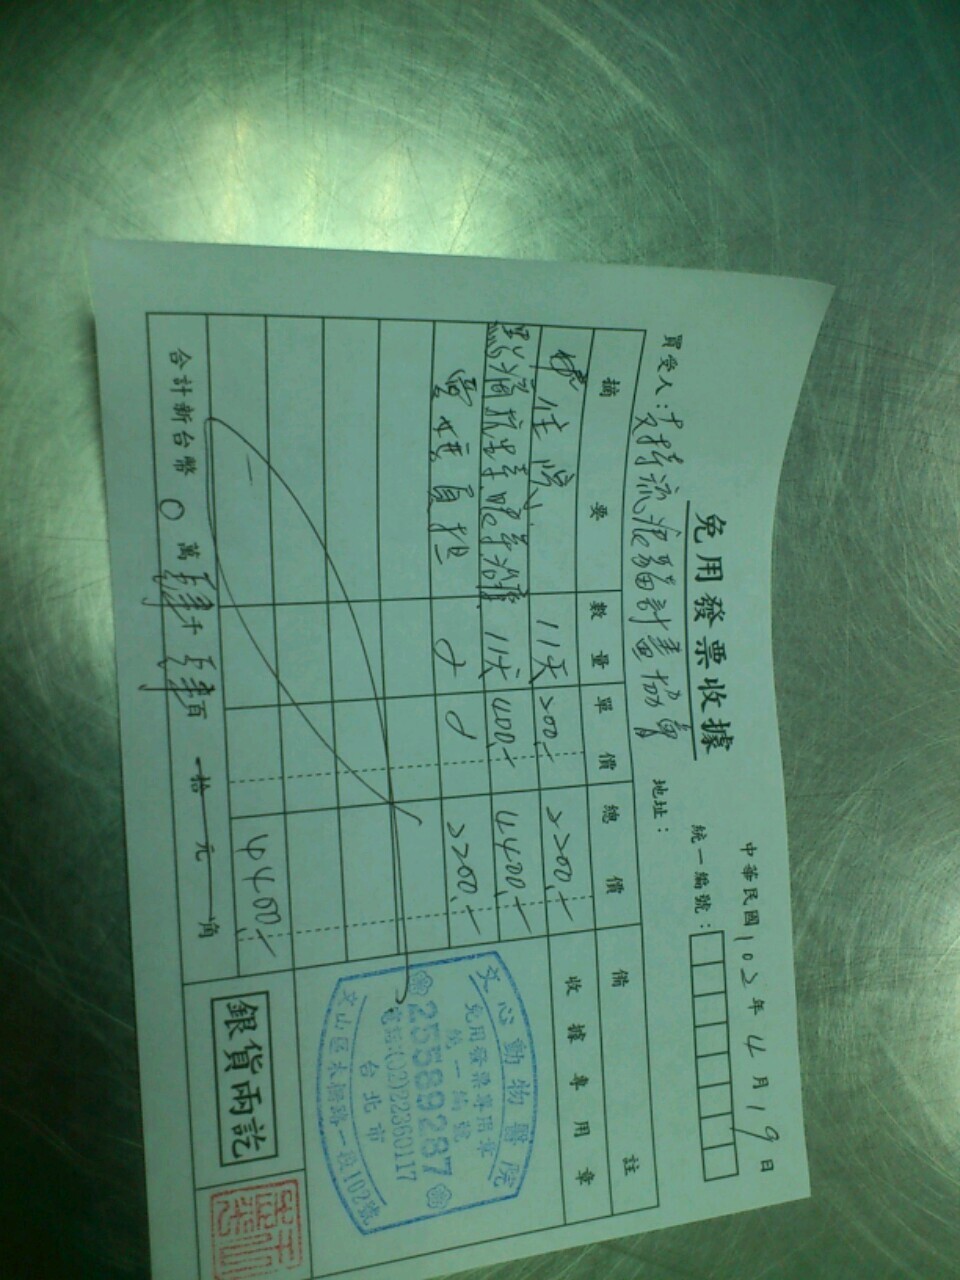 免用發票收據
中華民國102年4月19日
統一編號：
買受人：支持流浪貓計畫協會 地址：
摘要 數量 單價 總價 備註
住院 11天 200.- 2200.-
黑貓抗生素眼鼻治療 11天 400.- 4400.-
負担 2200.-
4400.-
合計新台幣 0萬肆千肆百 拾 元 角
收據專用章
文心動物醫院
免用發票專用章
統一編號
25589287
電話:(02)22360117
台北市
文山區木柵路一段102號
銀貨兩訖